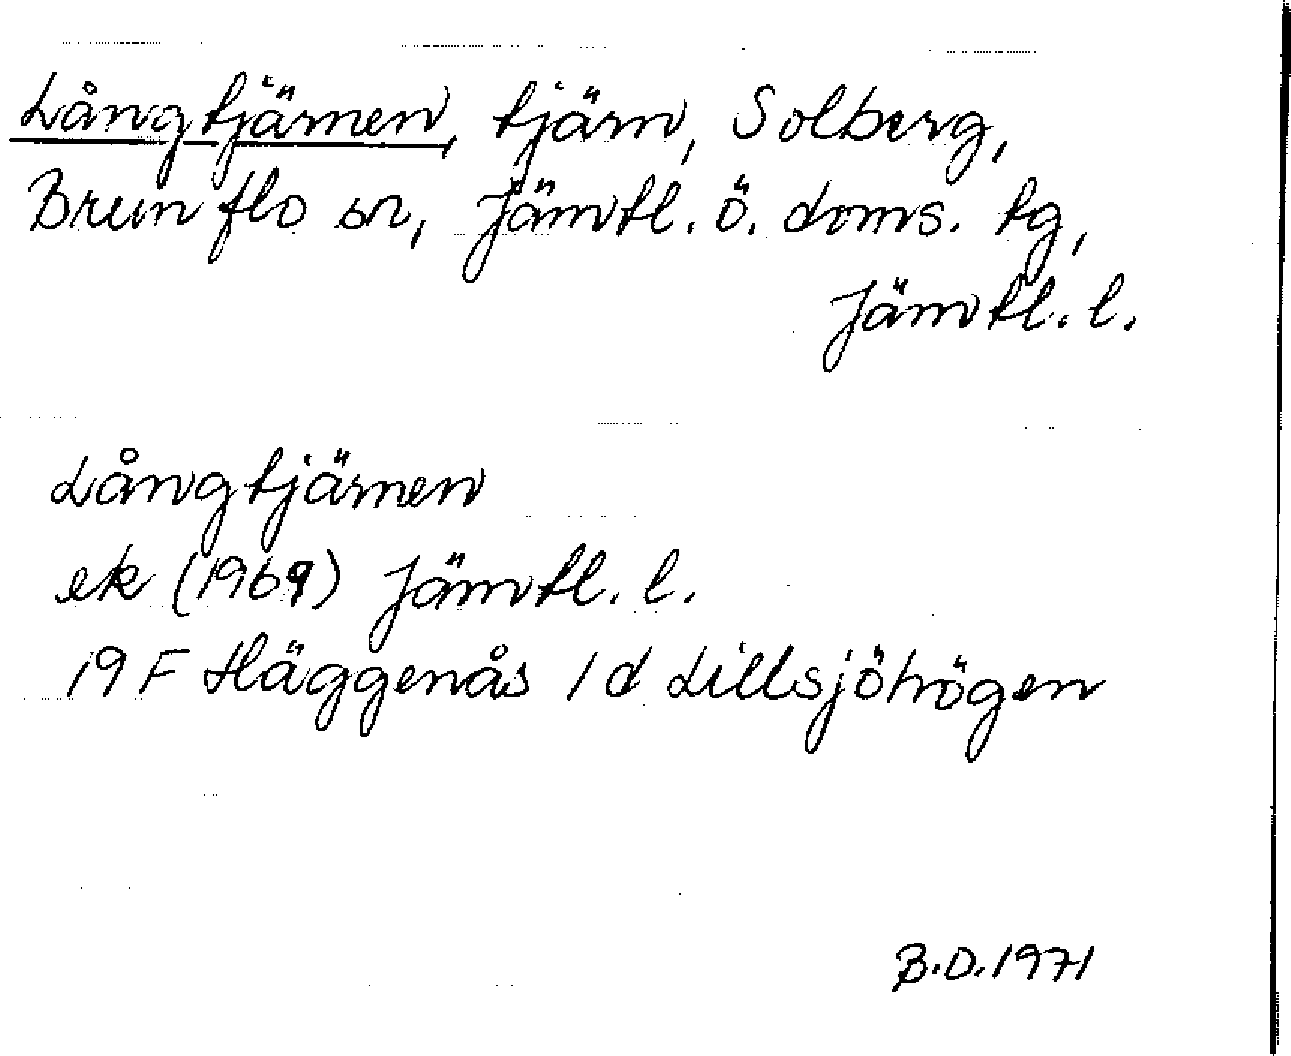 Långtjärnen, tjärn, Solberg,
Brunflo sn, Jämtl. ö. doms. tg,
Jämtl. l.
Långtjärnen
ek (1969) Jämtl. l.
19 F Häggenås 1 d Lillsjöhögen
B.D. 1971